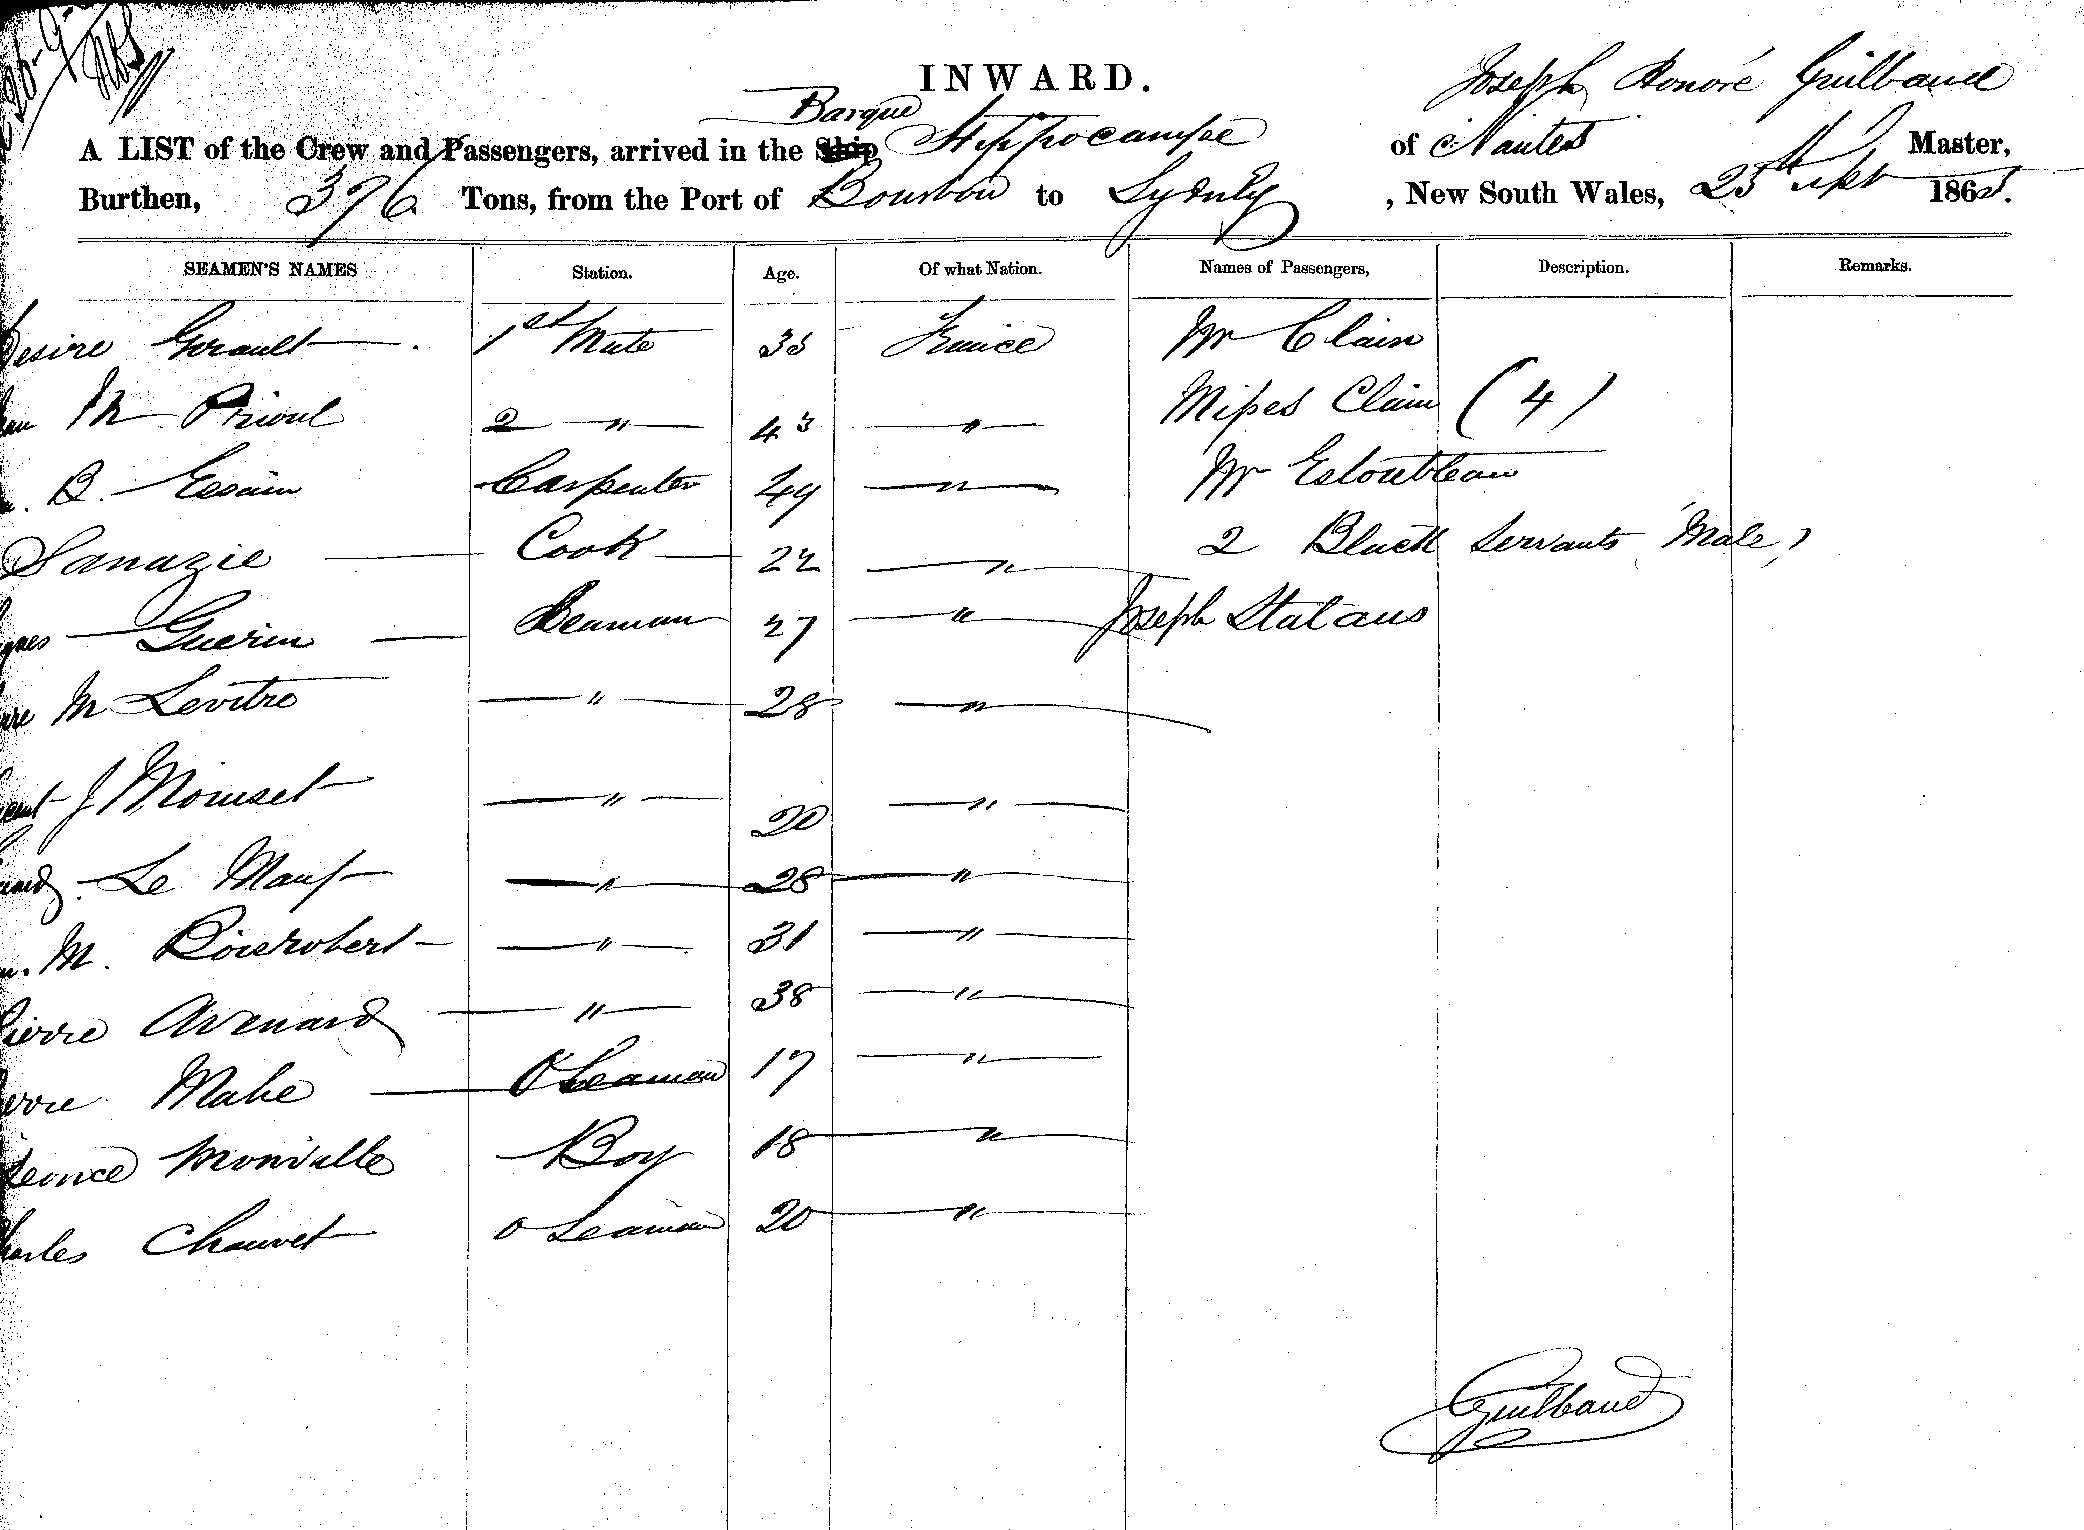 26-9-
INWARD.
Joseph Honoré Guilbaud
Barque
A LIST of the Crew and Passengers, arrived in the Ship Hippocampe of Nantes Master,
Burthen, 376 Tons, from the Port of Bourbon to Sydney, New South Wales, 25th Sept 1865.
SEAMEN'S NAMES Station. Age. Of what Nation. Names of Passengers, Description. Remarks.
Desire Gerault 1st Mate 35 France Mr Clain
M Prioul 2 " 43 " Misses Clain (4)
B. Essain Carpenter 49 " Mr Estoubleau
Sanazie Cook 22 " 2 Black Servants Male)
Guerin Seaman 27 " Joseph Statans
M Levitre " 28 "
J Momset " 20 "
Le Mauf " 28 "
M. Boisrobert " 31 "
Pierre Avenard " 38 "
Pierre Mahe O Seaman 17 "
Leonce Monville Boy 18 "
Charles Chauvet O Seaman 20 "
Guilbaud